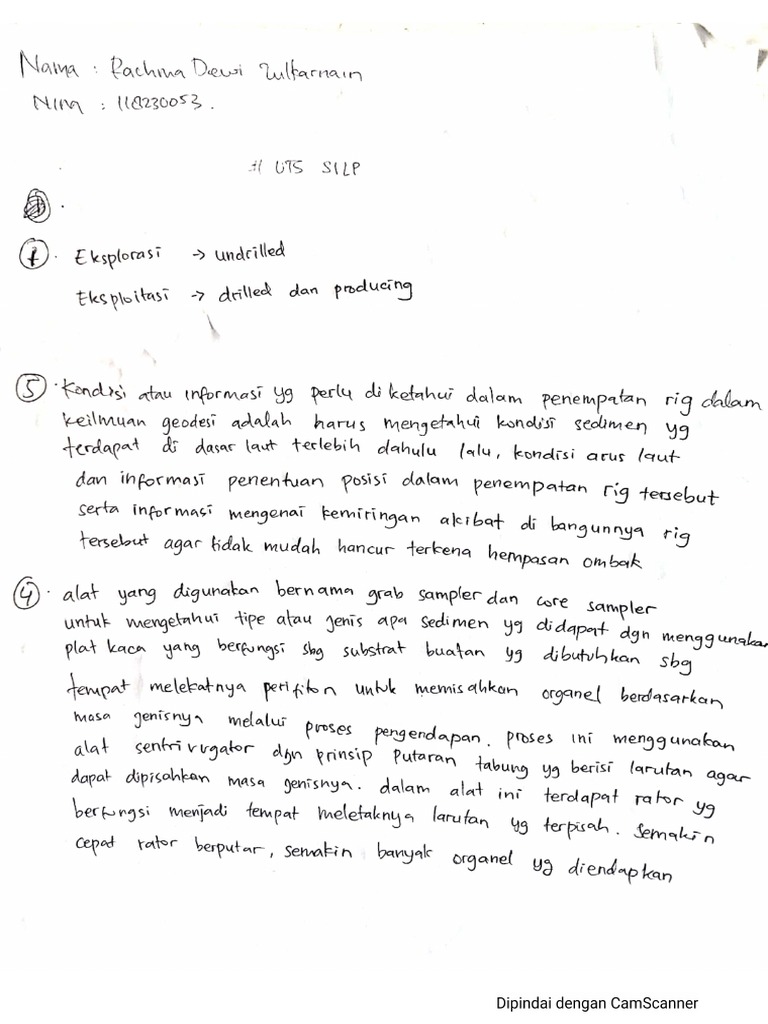 Nama : Rachma Dewi Zulkarnain
NIM : 118230053.
# UTS SILP
1. Eksplorasi → undrilled
Eksploitasi → drilled dan producing
5. Kondisi atau informasi yg perlu di ketahui dalam penempatan rig dalam
keilmuan geodesi adalah harus mengetahui kondisi sedimen yg
terdapat di dasar laut terlebih dahulu lalu, kondisi arus laut
dan informasi penentuan posisi dalam penempatan rig tersebut
serta informasi mengenai kemiringan akibat di bangunnya rig
tersebut agar tidak mudah hancur terkena hempasan ombak
4. alat yang digunakan bernama grab sampler dan core sampler
untuk mengetahui tipe atau jenis apa sedimen yg didapat dgn menggunakan
plat kaca yang berfungsi sbg substrat buatan yg dibutuhkan sbg
tempat melekatnya perifiton untuk memisahkan organel berdasarkan
masa jenisnya melalui proses pengendapan. proses ini menggunakan
alat sentrivugator dgn prinsip putaran tabung yg berisi larutan agar
dapat dipisahkan masa jenisnya. dalam alat ini terdapat rator yg
berfungsi menjadi tempat meletaknya larutan yg terpisah. semakin
cepat rator berputar, semakin banyak organel yg diendapkan
Dipindai dengan CamScanner